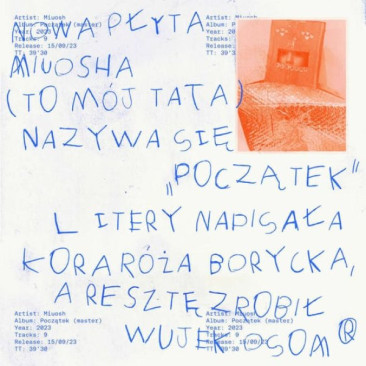 Artist: Miuosh
Album: Początek (master)
Year: 2023
Tracks: 9
Release: 15/09/23
TT: 39'30
NOWA PŁYTA
MIUOSHA
(TO MÓJ TATA)
NAZYWA SIĘ
„POCZĄTEK”
LITERY NAPISAŁA
KORARÓŻA BORYCKA,
A RESZTĘ ZROBIŁ
WUJEK OSOM®
Artist: Miuosh
Album: Początek (master)
Year: 2023
Tracks: 9
Release: 15/09/23
TT: 39'30
Album: Początek (master)
Year: 2023
Tracks: 9
Release: 15/09/23
TT: 39'30